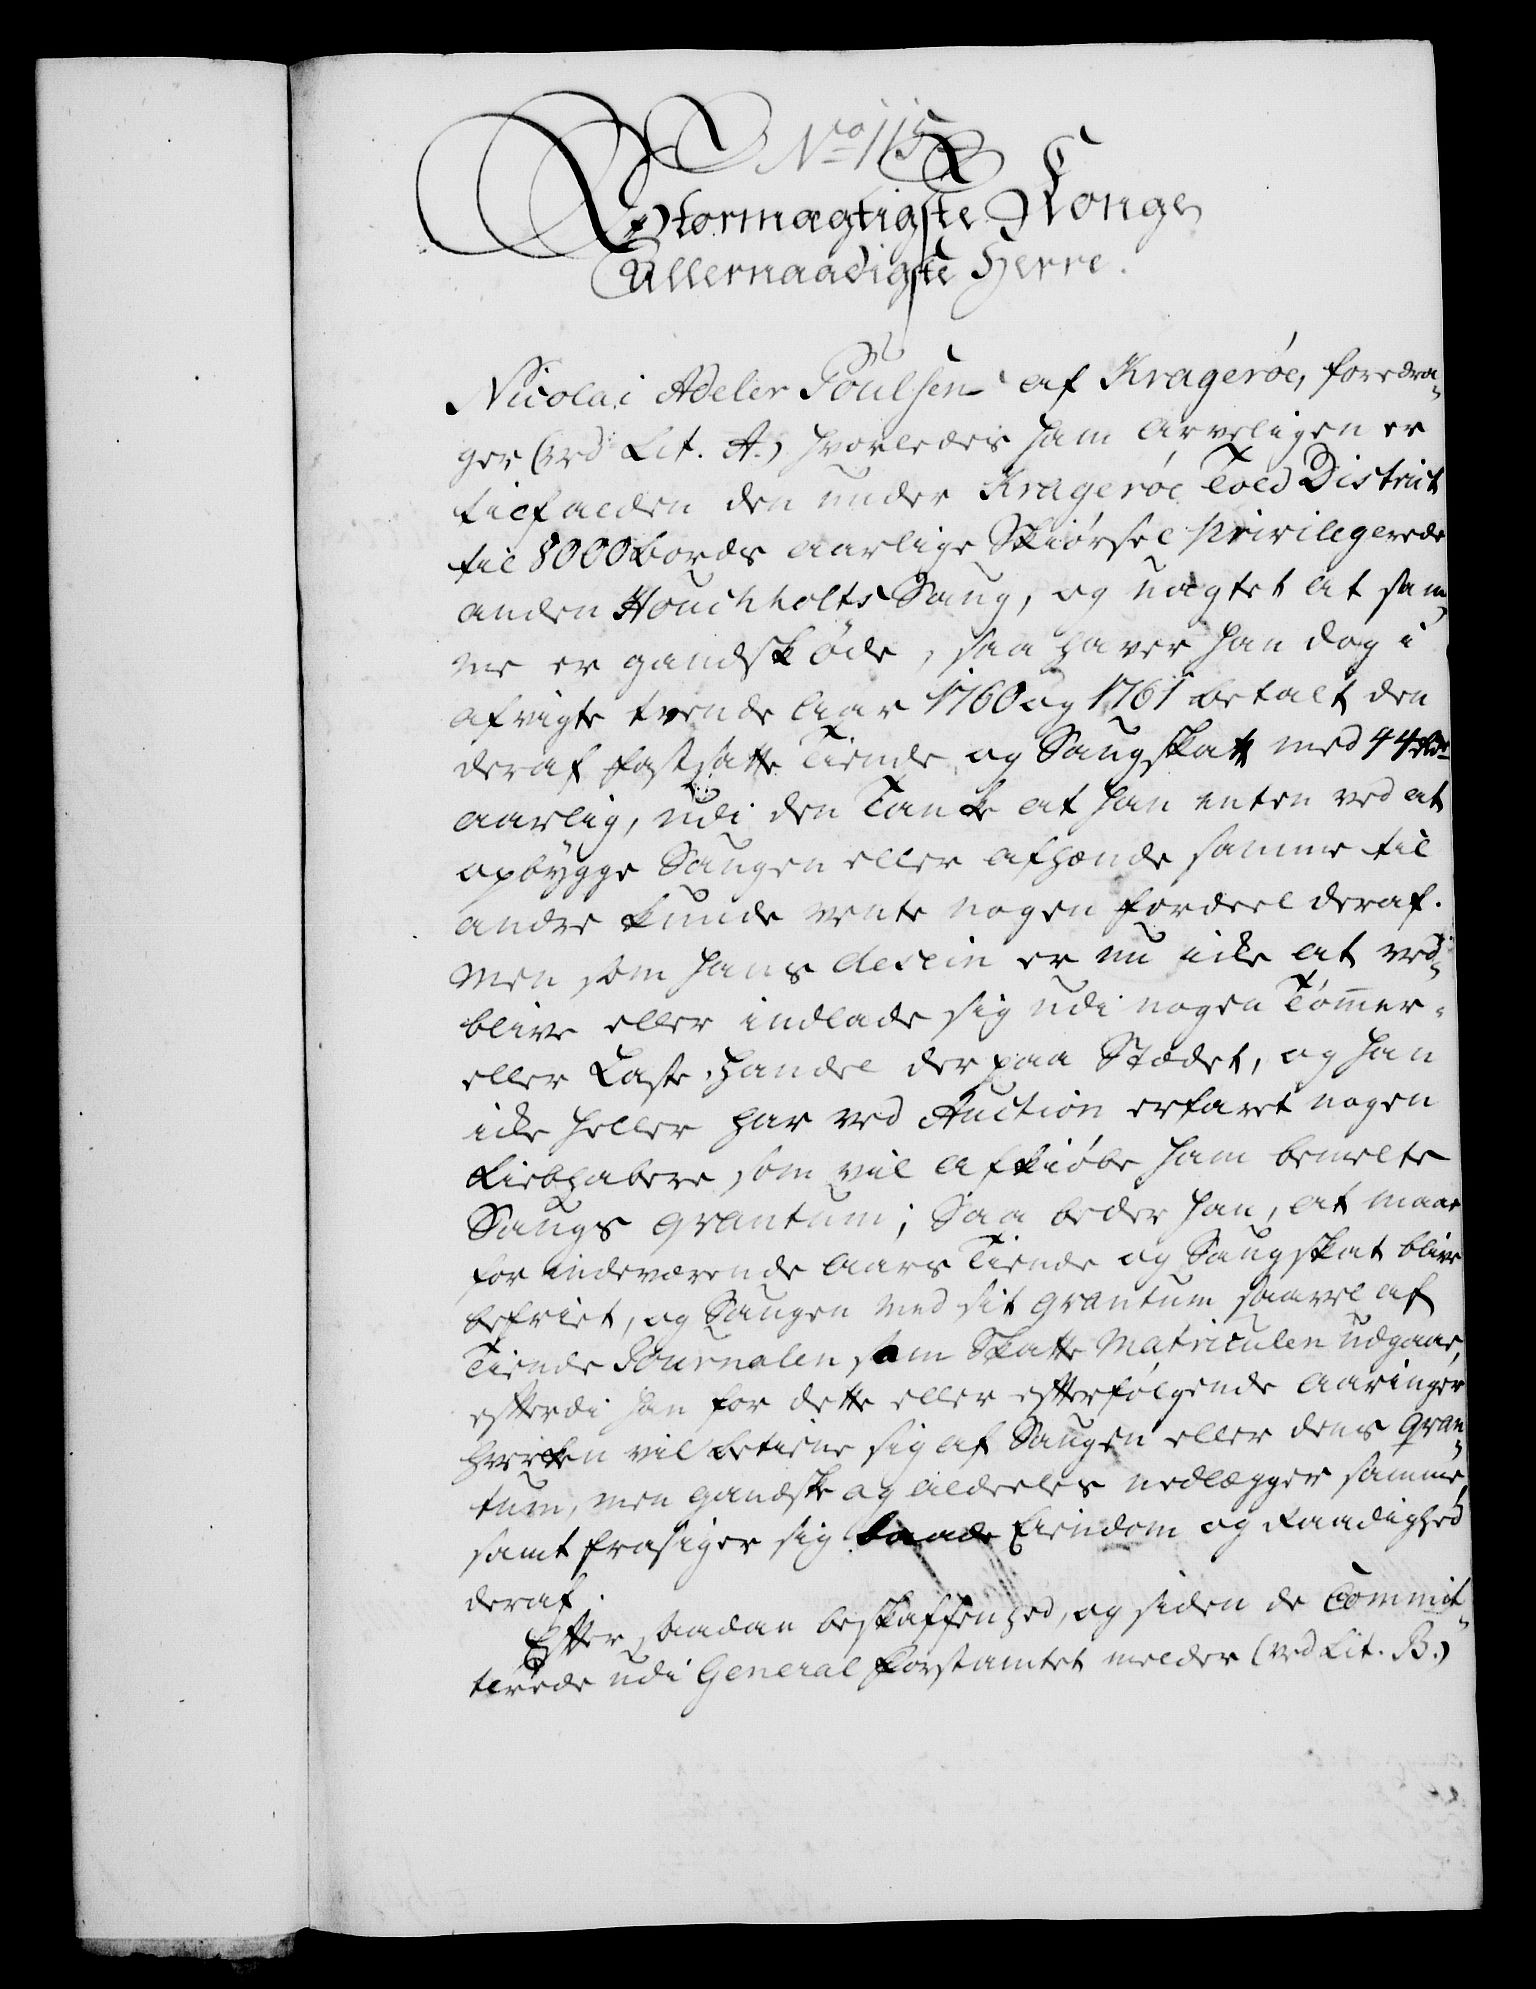 No 115
Stormægtigste Konge
Allernaadigste Herre.
Nicolai Adeler Poulsen af Kragerøe, foredra-
ger (ved Lit. A.) hvorledes ham arveligen er
tilfalden den under Kragerøe Told District
til 8000 bords aarlige Skiørsel privilegerede
anden Houchholts Saug, og uagtet at sam-
me er gandsk øde, saa haver han dog i
afvigte tvende Aar 1760 og 1761 betalt den
deraf fastsatte Tiende og Saugskatt med 44 rdr
aarlig, udi den Tanke at han enten ved at
opbygge Saugen eller afhænde samme til
andre kunde vente nogen fordeel deraf.
Men som hans desein er nu icke at ved-
blive eller indlade sig udi nogen Tømmer-
eller Last-Handel der paa Stædet, og han
icke heller har ved Auction erfaret nogen
Liebhabere som vil afkiøbe ham bemelte
Saugs qvantum; Saa beder han, at maae
for indeværende Aars Tiende og Saugskat blive
befriet, og Saugen med sit qvantum saavel af
Tiende Journalen som Skatte Matriculen udgaae,
efterdi han for dette eller efterfølgende Aaringer
hverken vil betiene sig af Saugen eller dens qvan-
tum, men gandske og aldeeles nedlægger samme
samt frasiger sig baade Eiendom og Raadighed
deraf.
Efter saadan beskaffenhed, og siden de Commit-
terede udi General Forstamtet melder (ved Lit. B.)